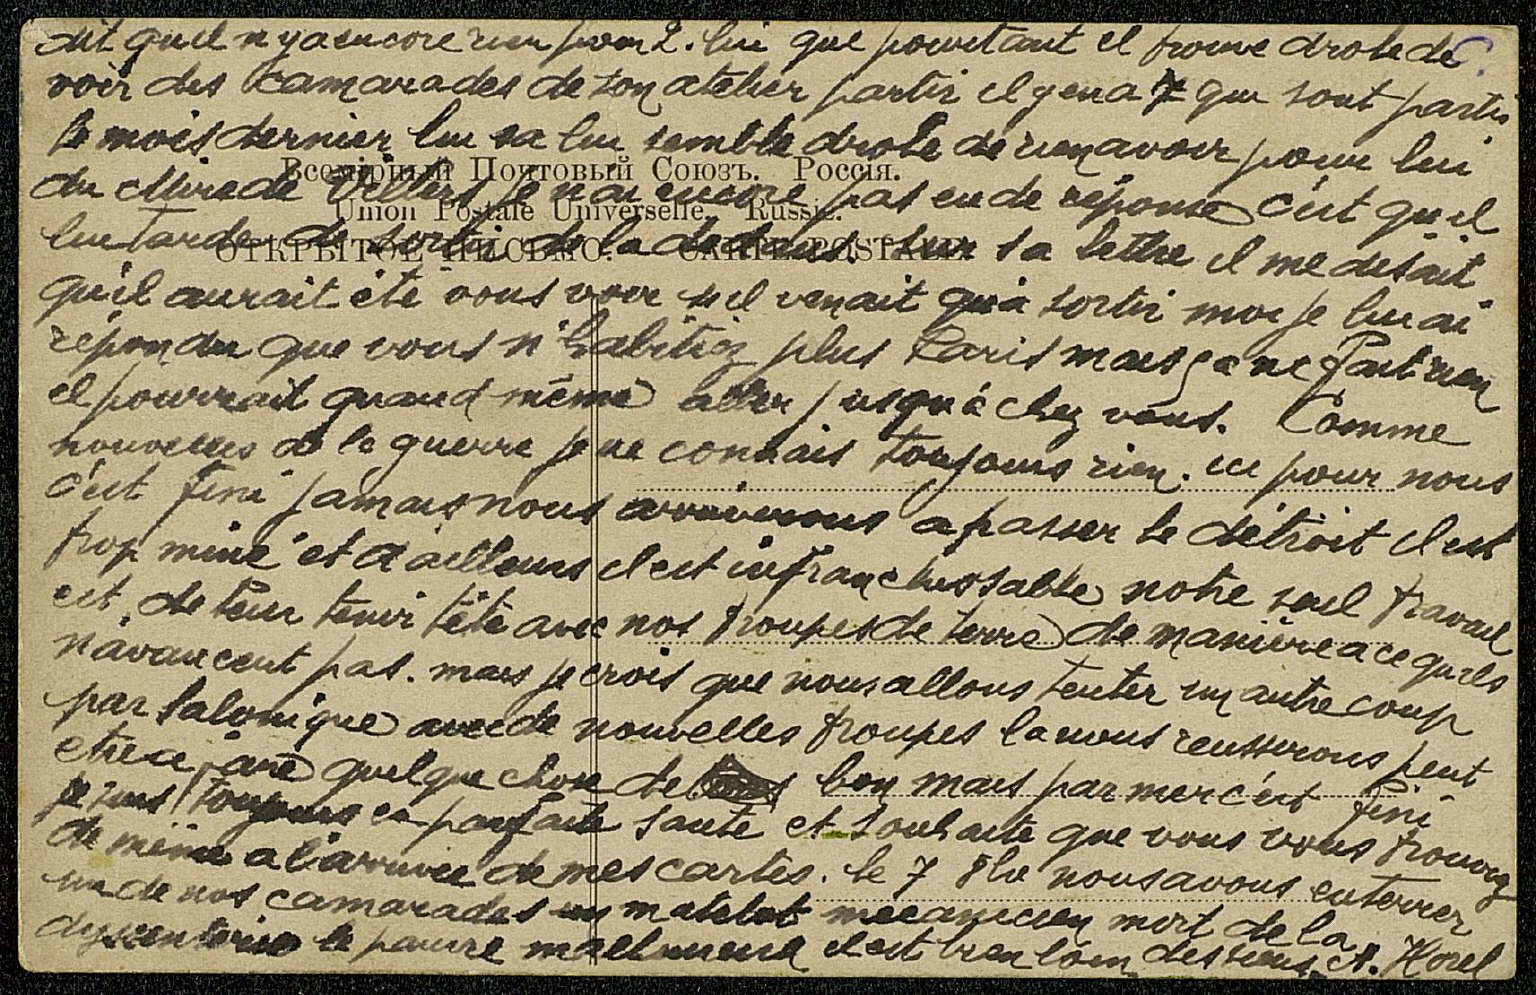 dit qu'il n'y a encore rien pour lui que pourtant il trouve drole de
voir des camarades de son atelier partir il y en a 7 qui sont partis
le mois dernier lui sa lui semble drole de rien avoir pour lui
Всемірный Почтовый Союзъ. Россія.
du Mire de Villers je n'ai encore pas eu de réponse c'est qu'il
Union Postale Universelle. Russie.
lui tarde de sortir de la dedans. sur sa lettre il me disait
ОТКРЫТОЕ ПИСЬМО. CARTE POSTALE.
qu'il aurait été vous voir s'il venait qu'a sortir moi je lui ai
répondu que vous n'habitiez plus Paris mais ça ne fait rien
il pourrait quand même aller jusqu'à chez vous. Comme
nouvelles de la guerre je ne connais toujours rien. ici pour nous
c'est fini jamais nous arriverons a passer le détroit il est
trop miné et d'ailleurs il est infranchissable notre seul travail
est de leur tenir tête avec nos troupes de terre de manière a ce qu'ils
n'avancent pas. mais je crois que nous allons tenter un autre coup
par Salonique avec de nouvelles troupes la nous reussirons peut
etre a faire quelque chose de bon mais par mer c'est fini
je suis toujours en parfaite santé et souhaite que vous vous trouviez
de même a l'arrivée de mes cartes. le 7 8bre nous avons enterrer
un de nos camarades un matelot mecanicien mort de la
dysenterie le pauvre malheureux il est bien loin des siens. A. Horel